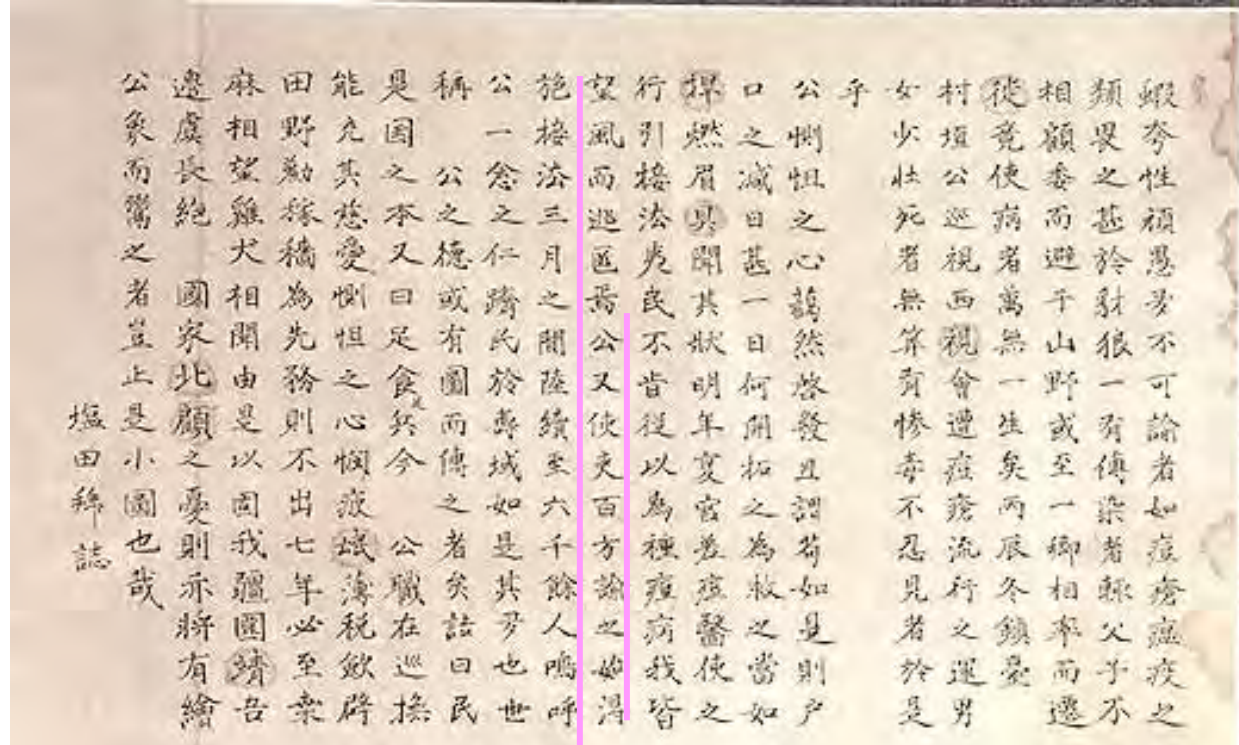 蝦夷性頑愚多不可諭者如痘瘡瘟疫之
類畏之甚於豺狼一有傳染者輒父子不
相顧委而避于山野或至一鄉相率而遷
從竟使病者萬無一生矣丙辰冬鎮臺
村垣公巡視西視會遭痘瘡流行之運男
女少壯死者無算有慘毒不忍見者於是
乎
公惻怛之心藹然啓發且謂苟如是則戶
口之減日甚一日何開拓之為牧之當如
捍燃眉具聞其狀明年夏官差痘醫使之
行引接法夷民不肯從以為種痘病我皆
望風而逃匿焉公又使吏百方諭之始得
施接法三月之間陸續至六千餘人嗚呼
公一念之仁躋民於壽域如是其多也世
稱 公之德或有圖而傳之者矣詰曰民
是固之本又曰足食足兵今 公職在巡撫
能充其慈愛惻怛之心憫疲氓薄稅斂辟
田野勸稼穡為先務則不出七年必至桑
麻相望雞犬相聞由是以固我疆圉濟吾
邊虞長絕 國家北顧之憂則亦將有繪
公象而鬻之者豈止是小圖也哉
塩田拜誌